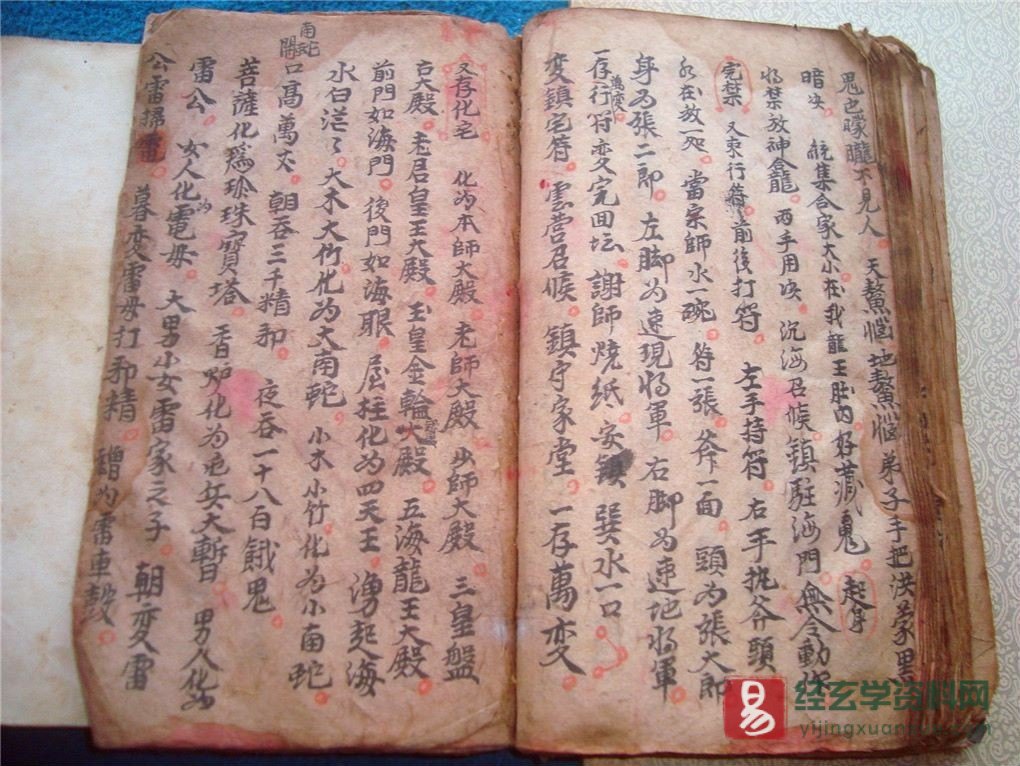 鬼之矇矓不見人 天鰲惱地鰲惱弟子手把洪蒙黑
暗决 統集合家大小在我龍王肚内好藏鬼 起身
将禁放神龕 两手用决 沉海召候鎮駐海門無令動作
完禁 又来行符前後打符 左手持符 右手执斧頭
水在放一处 當宗師水碗 符一張 斧一面 頭为張大郎
身为張二郎 左脚为速現将軍 右脚为速地将軍
一存行萬变符亦久完回坛 謝師燒紙 安鎮 巽水一口
变鎮宅符 雲营召候 鎮守家堂 一存萬变
又存化宅 化为本師大殿 老師大殿 少師大殿 三皇盤
古大殿 老君皇王大殿 玉皇金輪大殿 五海龍王大殿
前門如海門 後門如海眼 屋柱化为四天王 湧起海
水白茫茫 大木大竹化为大南蛇 小木小竹化为小南蛇
南蛇開口高萬丈 朝吞三千精邪 夜吞一十八百餓鬼
菩薩化爲珍珠寶塔 香炉化为 兵大 男人化为
雷公 女人化为電母 大男小女雷家之子 朝变雷
公雷掃電 暮变雷母打邪精 为雷車
易
经玄学资料网
yijingxuan